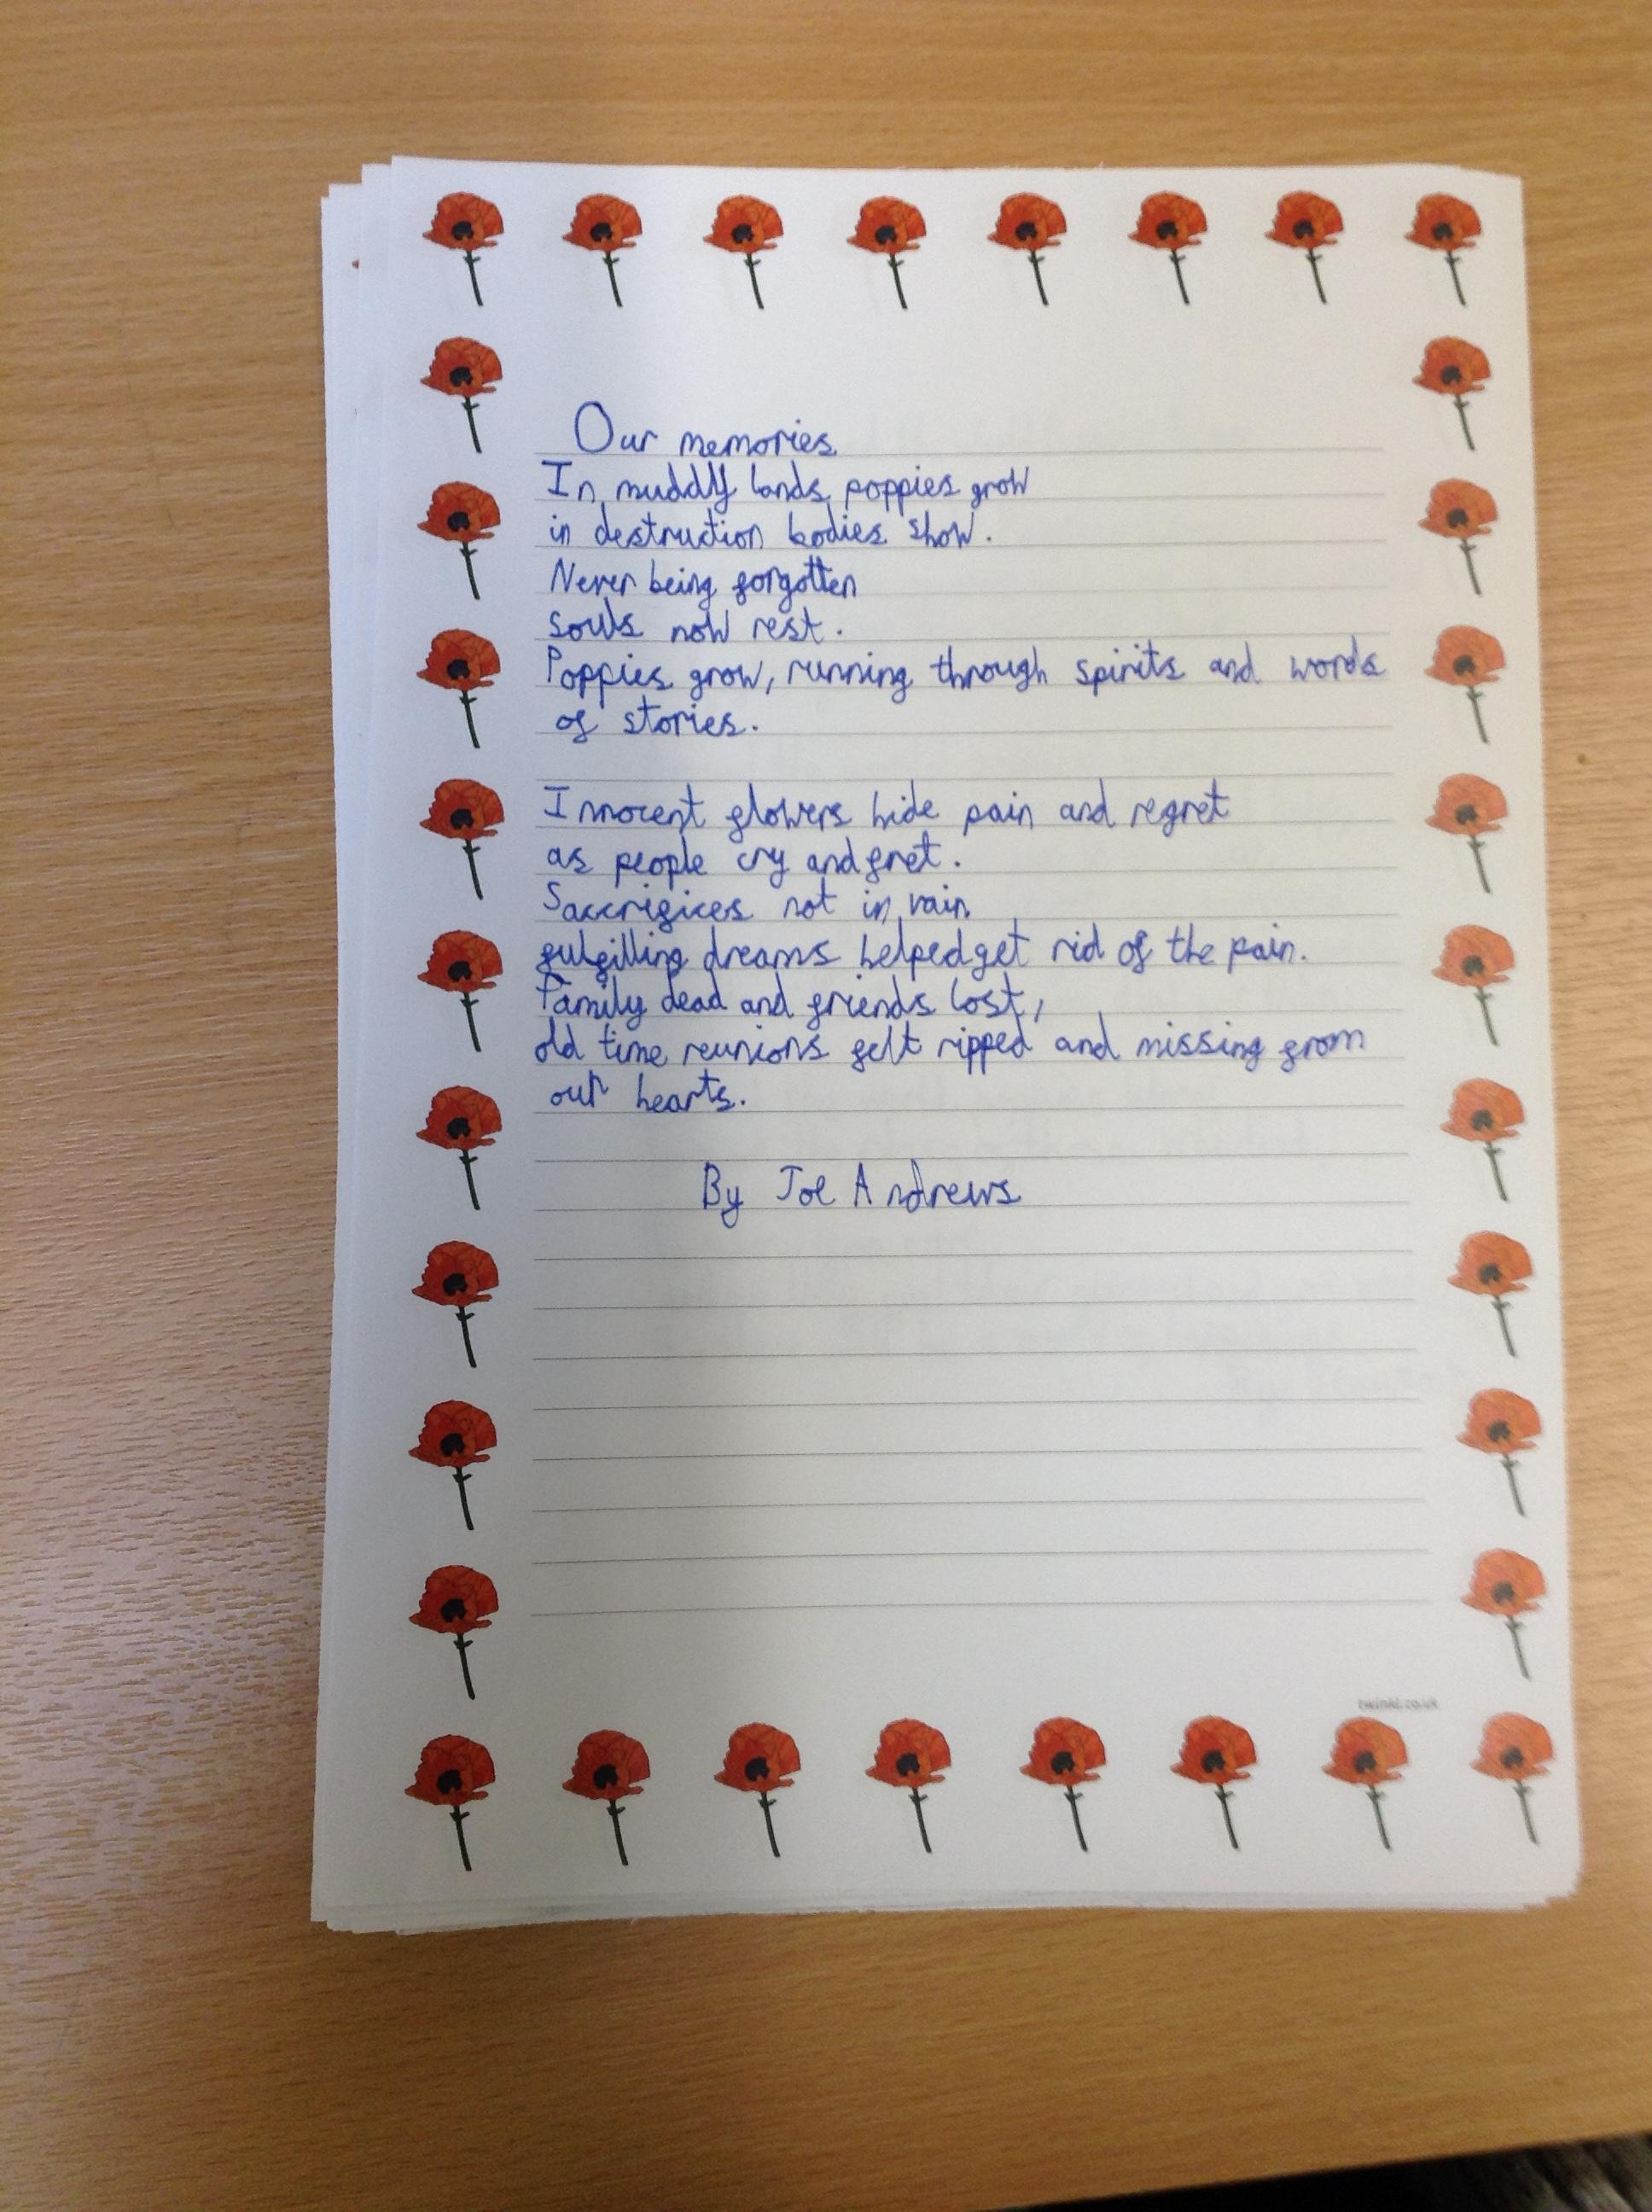 Our memories
In muddy lands poppies grow
in destruction bodies show.
Never being forgotten
souls now rest.
Poppies grow, running through spirits and words
of stories.
Innocent flowers hide pain and regret
as people cry and fret.
Saccrifices not in vain
fulfilling dreams helped get rid of the pain.
Family dead and friends lost,
old time reunions felt ripped and missing from
our hearts.
By Joe Andrews
twinkl.co.uk